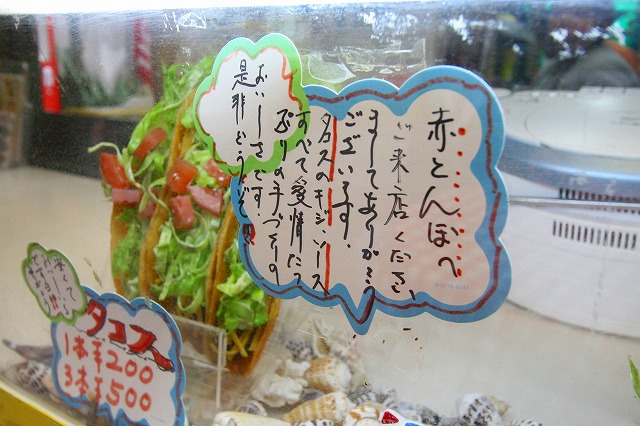 赤とんぼへ
ご来店ください
ましてありがとう
ございます。
タコスのキジ、ソース
すべて愛情たっ
ぷりの手づくりの
おいしさです。
是非どうぞ!!
タコス
1本¥200
3本¥500